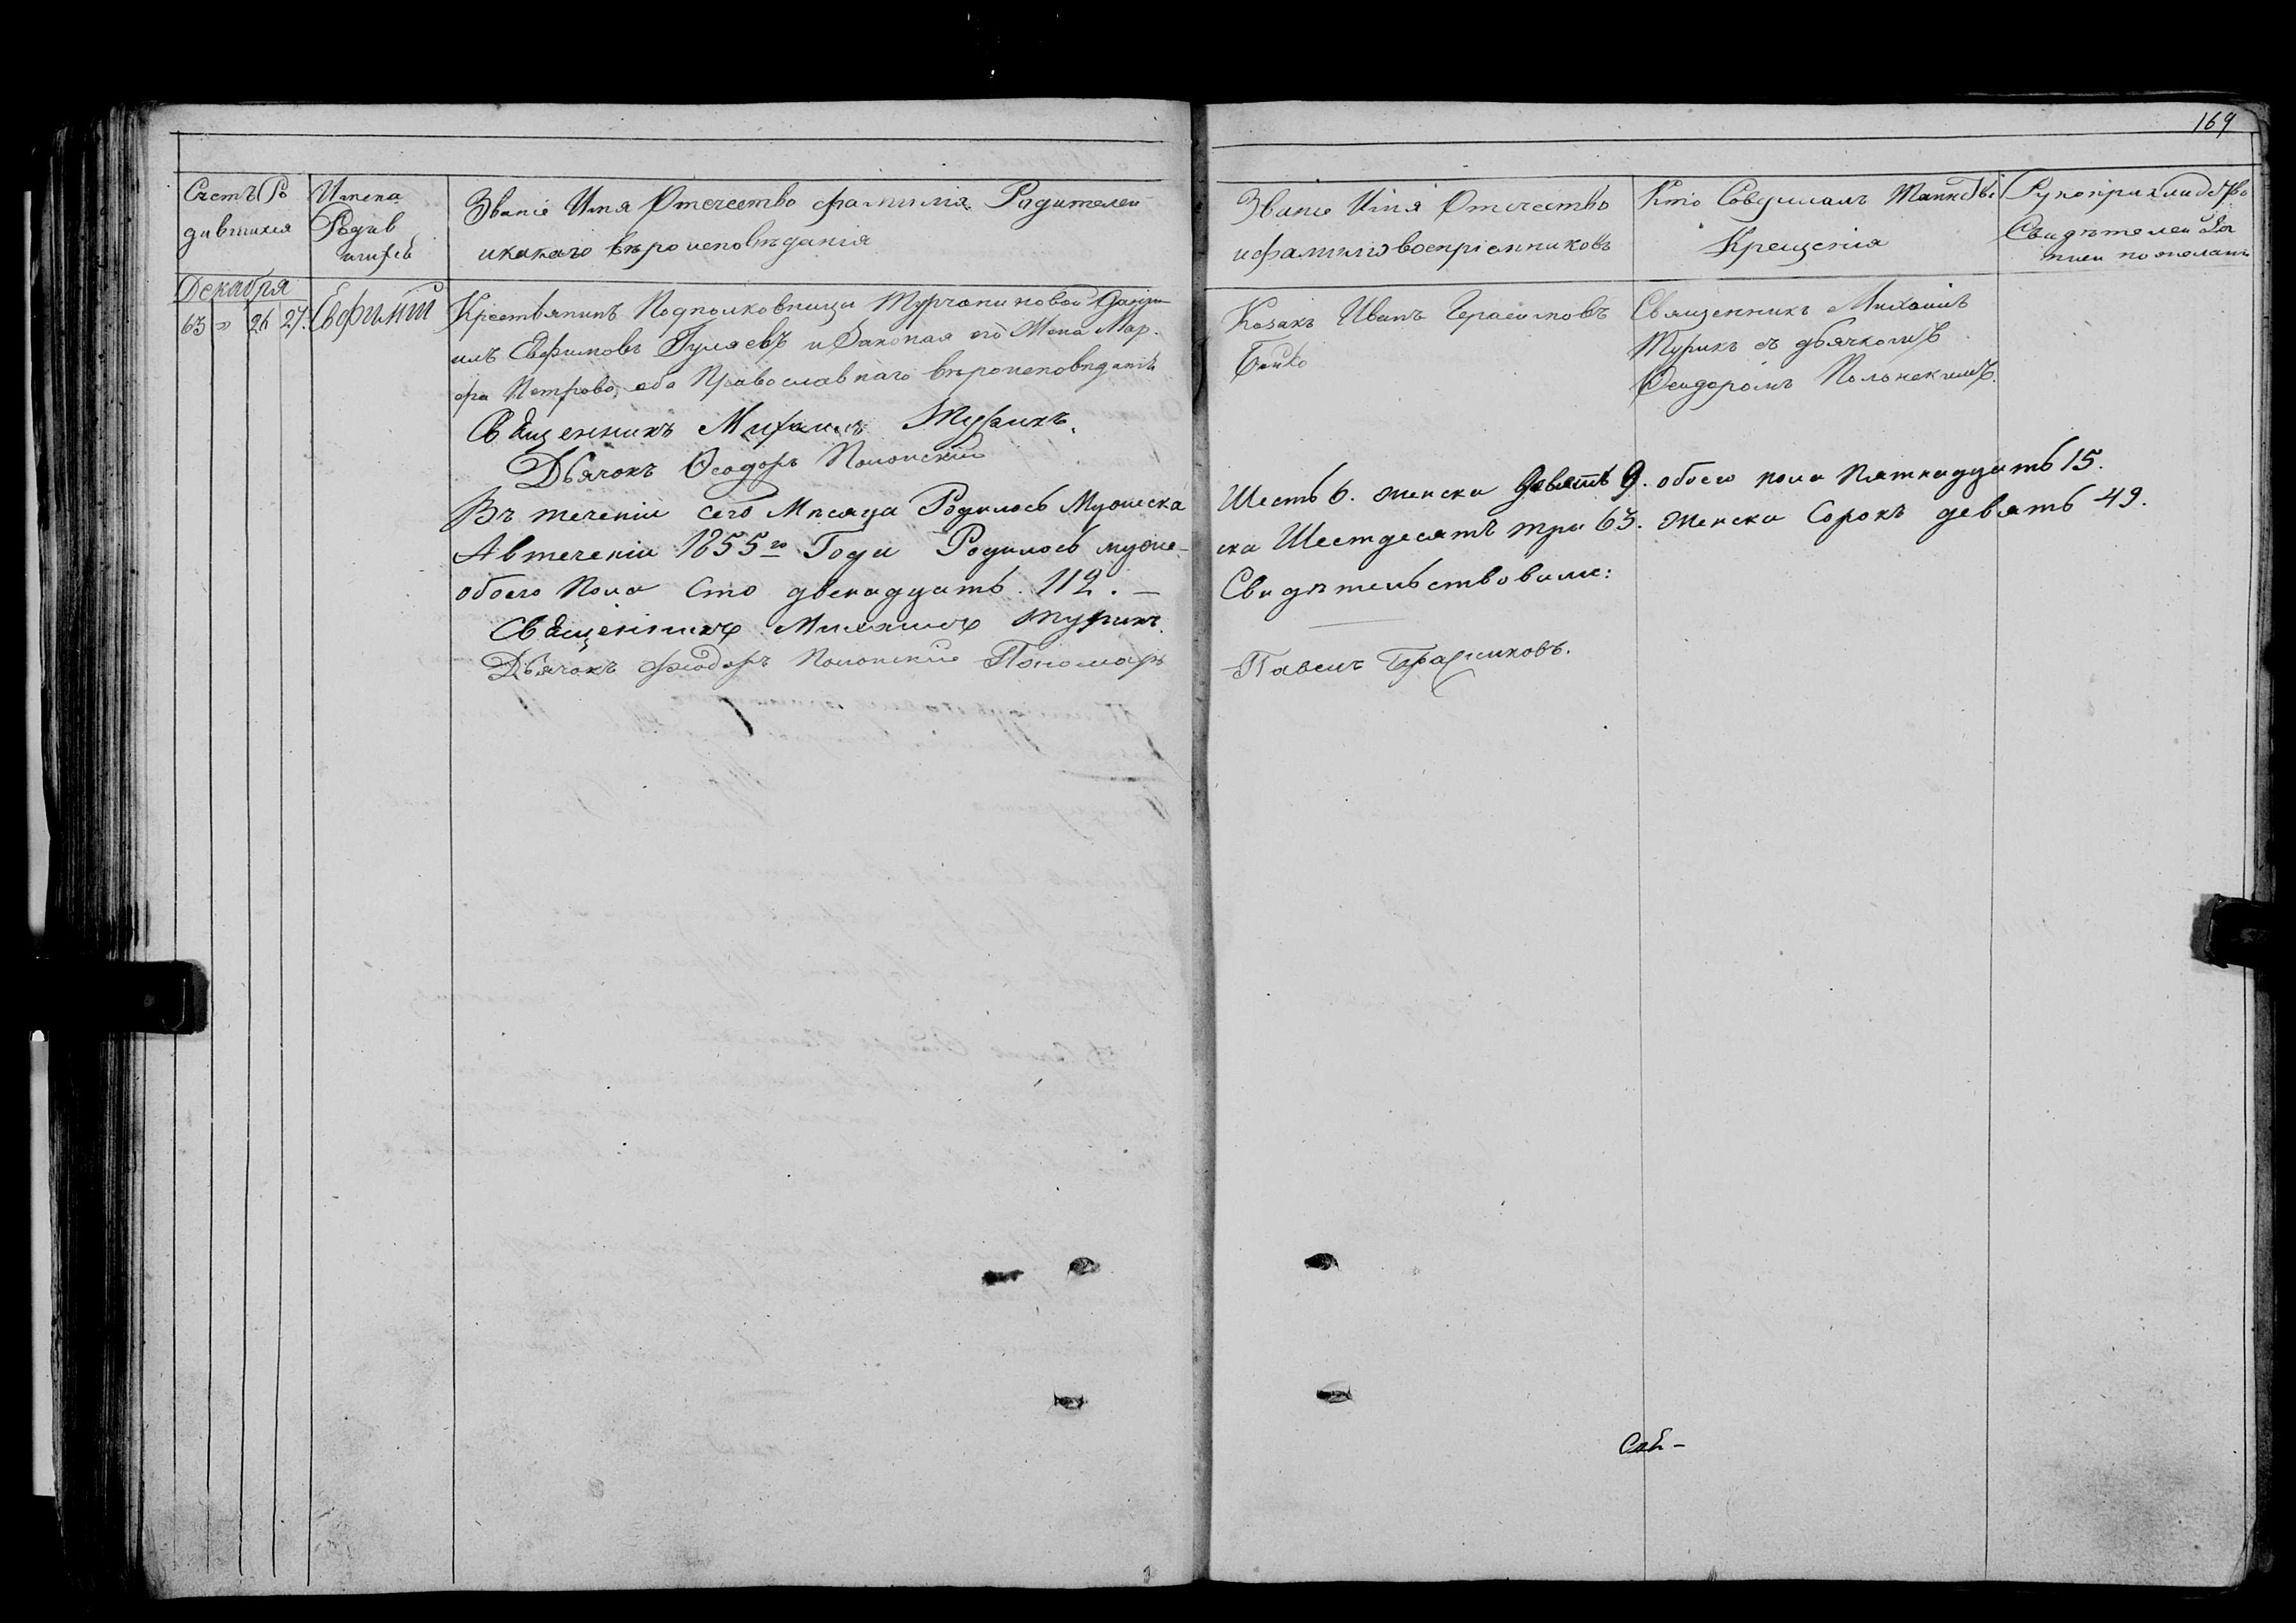 169
Счетъ Ро
дившихся
Имена
Родив
шихся
Званіе Имя Отечество фамилія Родителей
и какаго вѣроисповѣданія
Званіе Имя Отечество
и фамилію воспріемниковъ
Кто Совершалъ Таинство
Крещенія
Рукоприкладство
Свидѣтелей За
писи по желанію
Декабря
63 " 26 27. Евфимій
Крестьянинъ Подполковницы Турчаниновой
илъ Евфимовъ Гуляевъ и Законая его Жена Мар-
фа Петрова, оба Православнаго вѣроисповеданія
Козакъ Иванъ Герасимовъ
Бойко
Священникъ Михаилъ
Турикъ съ дьячкомъ
Феодоромъ Полонскимъ.
Священникъ Михаилъ Турикъ.
Дьячокъ Ѳеодоръ Полонскій
Въ теченіи сего Месяца Родилось Мужеска Шесть 6. женска Девять 9. обоего пола Пятнадцать 15.
А втеченіи 1855го Года Родилось муже- ска Шестдесятъ три 63. Женска Сорокъ девять 49.
обоего Пола Сто двенадцать. 112. — Свидѣтельствовали:
Священникъ Михаилъ Турикъ.
Дьячокъ Феодоръ Полонскій Пономарь Павелъ Герасимовъ.